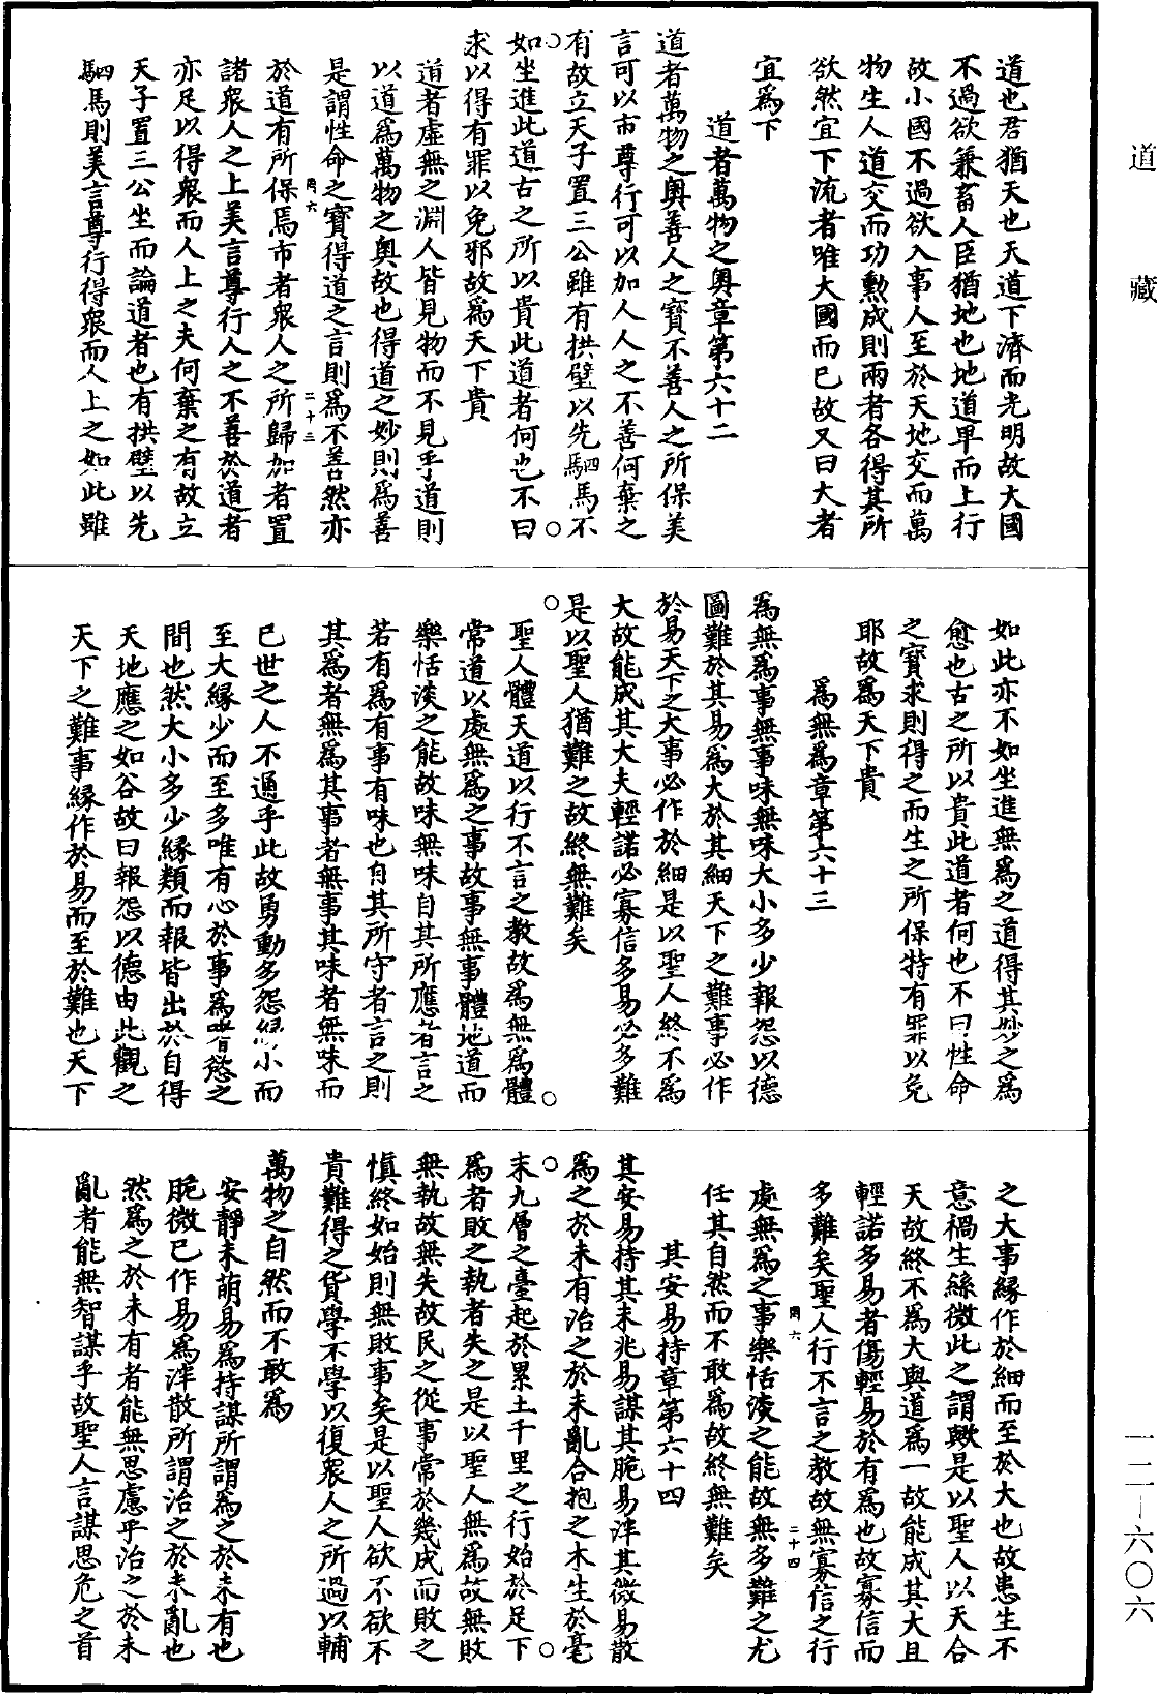 道藏
道也君猶天也天道下濟而光明故大國
不過欲兼畜人臣猶地也地道卑而上行
故小國不過欲入事人至於天地交而萬
物生人道交而功勲成則兩者各得其所
欲然宜下流者唯大國而已故又曰大者
宜爲下
道者萬物之奥章第六十二
道者萬物之奥善人之寳不善人之所保美
言可以市尊行可以加人人之不善何棄之
有故立天子置三公雖有拱璧以先駟馬不
如坐進此道古之所以貴此道者何也不曰
求以得有罪以免邪故爲天下貴
道者虚無之淵人皆見物而不見乎道則
以道爲萬物之奥故也得道之妙則爲善
是謂性命之寳得道之言則爲不善然亦
周六
二十三
於道有所保焉市者衆人之所歸加者置
諸衆人之上美言尊行人之不善於道者
亦足以得衆而人上之夫何棄之有故立
天子置三公坐而論道者也有拱璧以先
駟馬則美言尊行得衆而人上之如此雖
如此亦不如坐進無爲之道得其妙之爲
愈也古之所以貴此道者何也不曰性命
之寳求則得之而生之所保特有罪以免
耶故爲天下貴
爲無爲章第六十三
爲無爲事無事味無味大小多少報怨以德
圖難於其易爲大於其細天下之難事必作
於易天下之大事必作於細是以聖人終不爲
大故能成其大夫輕諾必寡信多易必多難
是以聖人猶難之故終無難矣
聖人體天道以行不言之教故爲無爲體
常道以處無爲之事故事無事體地道而
樂恬淡之能故味無味自其所應者言之
若有爲有事有味也自其所守者言之則
其爲者無爲其事者無事其味者無味而
已世之人不通乎此故勇動多怨緣小而
至大緣少而至多唯有心於事爲嗜慾之
間也然大小多少緣類而報皆出於自得
天地應之如谷故曰報怨以德由此觀之
天下之難事緣作於易而至於難也天下
之大事緣作於細而至於大也故患生不
意禍生絲微此之謂歟是以聖人以天合
天故終不爲大與道爲一故能成其大且
輕諾多易者傷輕易於有爲也故寡信而
多難矣聖人行不言之教故無寡信之行
周六
二十四
處無爲之事樂恬淡之能故無多難之尤
任其自然而不敢爲故終無難矣
其安易持章第六十四
其安易持其未兆易謀其脆易泮其微易散
爲之於未有治之於未亂合抱之木生於毫
末九層之臺起於累土千里之行始於足下
爲者敗之執者失之是以聖人無爲故無敗
無執故無失故民之從事常於幾成而敗之
慎終如始則無敗事矣是以聖人欲不欲不
貴難得之貨學不學以復衆人之所過以輔
萬物之自然而不敢爲
安靜未萌易爲持謀所謂爲之於未有也
脆微已作易爲泮散所謂治之於未亂也
然爲之於未有者能無思慮乎治之於未
亂者能無智謀乎故聖人言謀思危之首
一二—六〇六